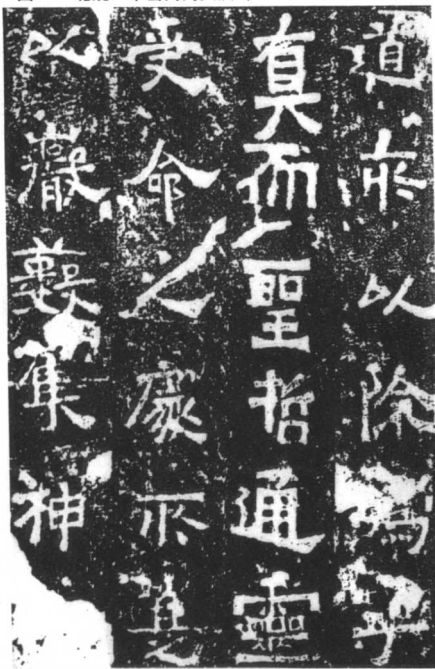 道亦以除僞
真而聖哲通靈
受命之處亦
以嚴藪集神